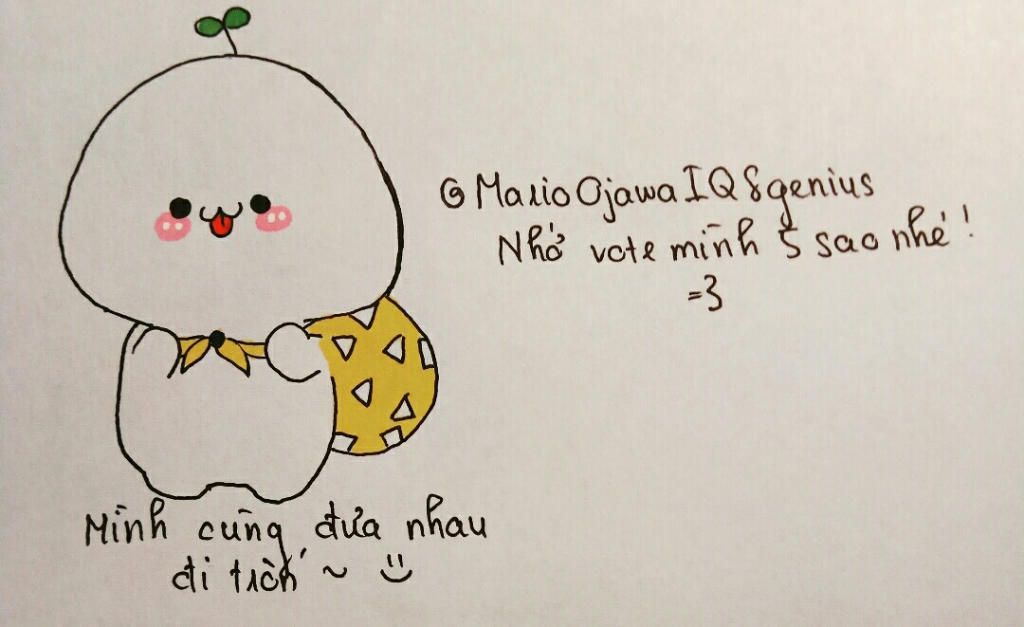 @MarioOjawaIQ8genius
Nhớ vote mình 5 sao nhé!
=3
Mình cùng đưa nhau
đi trốn ~ :)